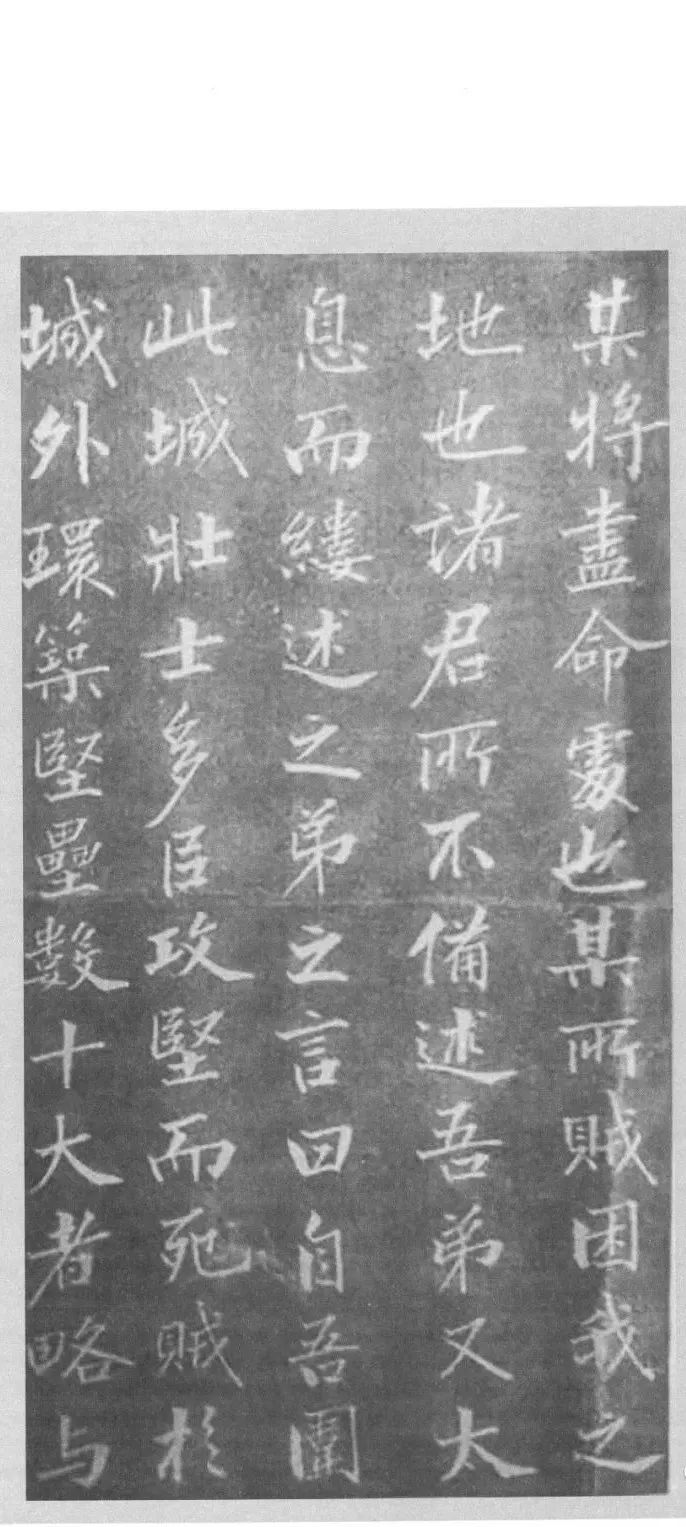 某将盡命處也某所賊困我之
地也諸君所不備述吾弟又太
息而縷述之弟之言曰自吾圍
此城壯士多臣攻堅而死賊於
城外環築堅壘數十大者略与